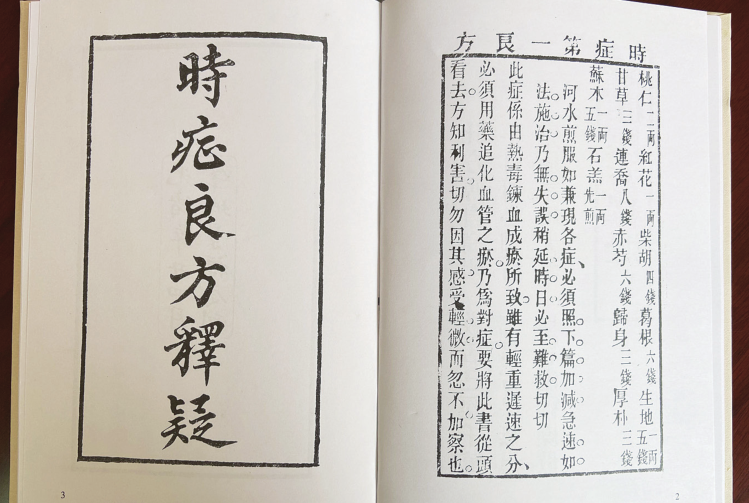 時症第一良方
桃仁二兩紅花一兩柴胡四錢葛根六錢生地一兩五錢
甘草三錢連喬八錢赤芍六錢歸身三錢厚朴三錢
蘇木一兩五錢石羔一兩先煎
河水煎服如兼現各症、必須照下篇加減急速如
法施治乃無失誤稍延時日必至難救切切
此症係由熱毒鍊血成瘀所致雖有輕重遲速之分、
必須用藥追化血管之瘀。乃爲對症要將此書從頭
看去方知利害切勿因其感受輕微而忽不加察也
2
時症良方釋疑
3